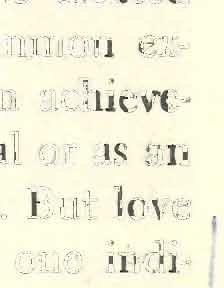 ex-
achieve-
or as an
. But love
one indi-